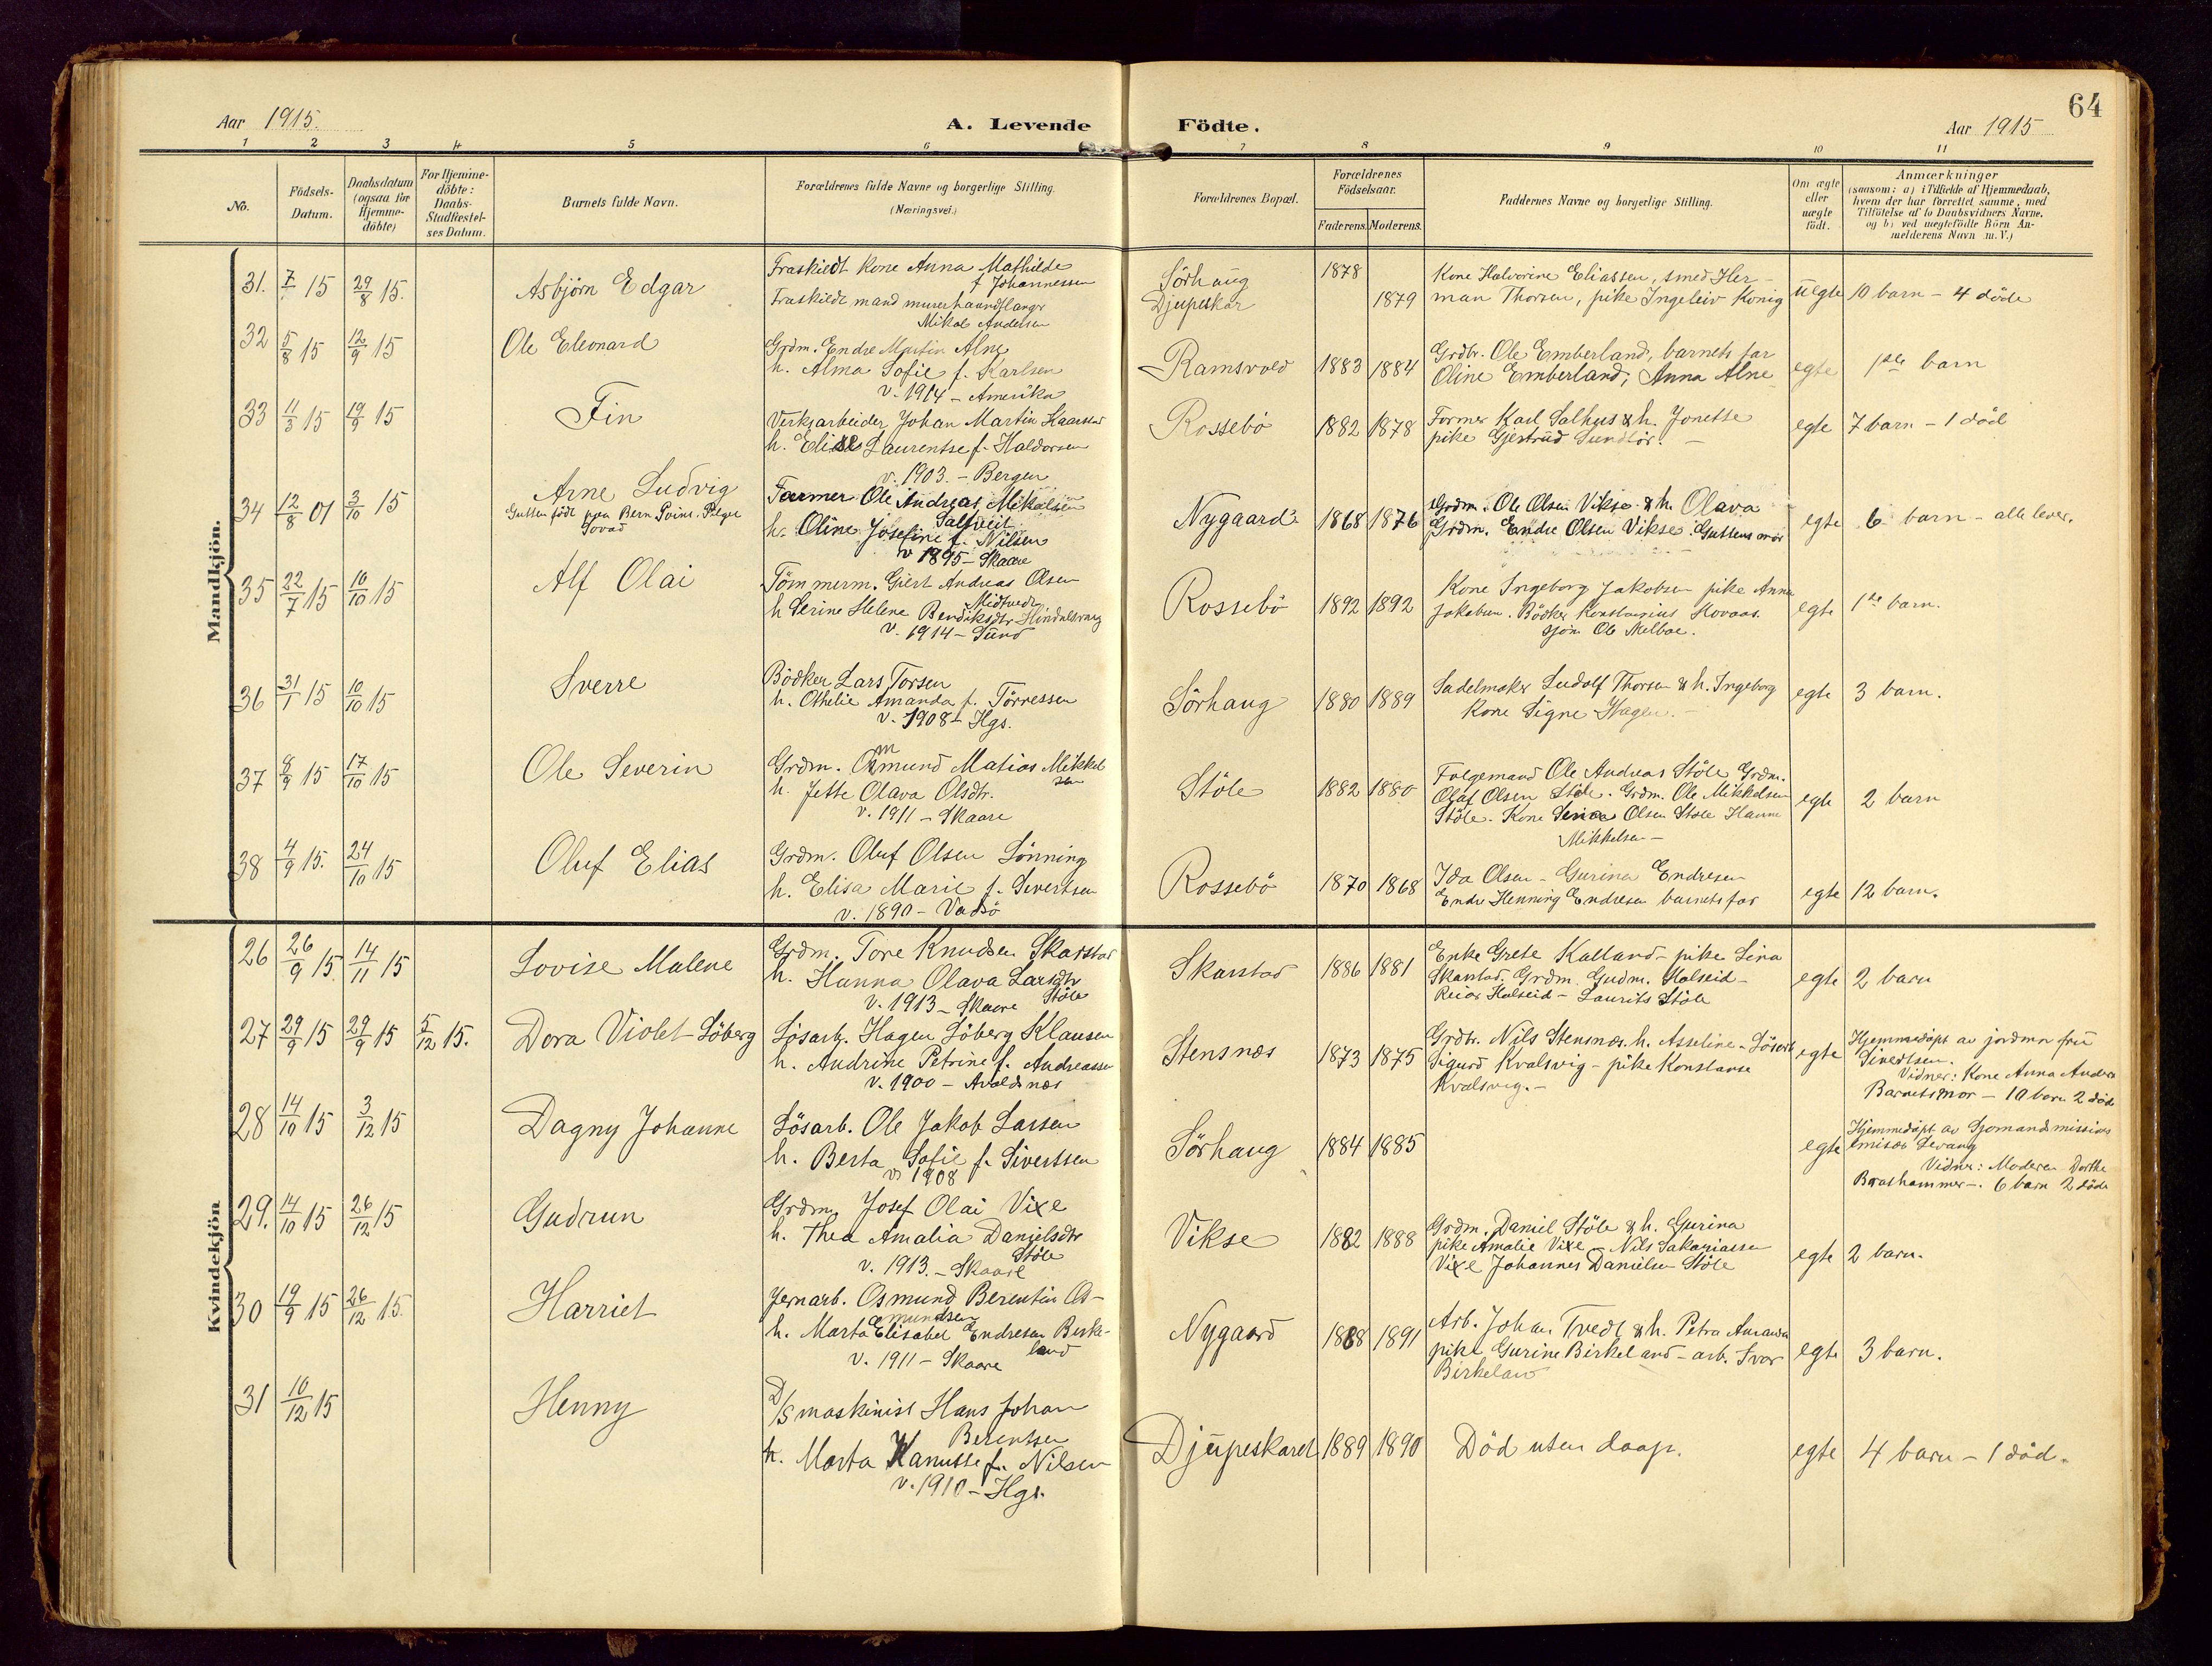 64
Aar 1915.
A. Levende Födte.
Aar 1915
1 2 3 4 5 6 7 8 9 10 11
No.
Födsels-
Datum.
Daabsdatum
(ogsaa for
Hjemme-
döbte)
For Hjemme-
döbte:
Daabs-
Stadfæstel-
ses Datum.
Barnets fulde Navn.
Forældrenes fulde Navne og borgerlige Stilling.
(Næringsvei.)
Forældrenes Bopæl.
Forældrenes
Födselsaar.
Faderens. Moderens.
Faddernes Navne og borgerlige Stilling.
Om ægte
eller
uægte
födt.
Anmærkninger
(saasom: a) i Tilfælde af Hjemmedaab,
hvem der har forrettet samme, med
Tilföielse af to Daabsvidners Navne,
og b) ved uægtefödte Börn An-
melderens Navn m. V.)
Mandkjön.
31. 7/ 15 29/8 15.
Asbjörn Edgar
Fraskiedt kone Anna Mathilde
f. Johannessen
Fraskiedt mand murerhaandlanger
Mikal Andersen
Sörhaug
Djupeskar
1878
1879
Kone Halvorine Eliassen, smed Her-
man Thorsen, pike Ingeleiv Konig
uegte
10 barn - 4 döde
32 5/8 15 12/9 15
Ole Eleonard
Grdm. Endre Martin Alne
h. Alma Sofie f. Karlsen
v. 1914 - Amerika
Ramsvold
1883 1884
Grdbr. Ole Emberland, barnets far
Oline Emberland, Anna Alne
egte
1ste barn
33 11/3 15 19/9 15
Fin
Verksarbeider Johan Martin Kaarstad
h. Elise Laurentse f. Haldorsen
v. 1903. - Bergen
Rossebö
1882 1878
Former Karl Salhus & h. Jonette
pike Gjertrud Sundför. -
egte
7 barn - 1 död
34 12/8 01 3/10 15
Arne Ludvig
Gutten födt paa Bern
Farmer Ole Andreas Mikalsen
Saltveit
h. Oline Josefine f. Nilsen
v 1895 - Skaare
Nygaard
1868 1876
Grdm. Ole Olsen Vikse & h. Olava
Grdm. Endre Olsen Vikse. Guttens mor
egte
6 barn - alle lever.
35 22/7 15 10/10 15
Alf Olai
Tömmerm. Giert Andreas Olsen
Midtvedt
h Serine Helene Bendiksdtr
v. 1914 - Sund
Rossebö
1892 1892
Kone Ingeborg Jakobsen pike Anna
Jakobsen. Bödker Konstansius Hovaas.
sjöm Ole Melboe.
egte
1ste barn.
36 31/1 15 10/10 15
Sverre
Bödker Lars Torsen
h. Othelie Amanda f. Törressen
v. 1908 - Hgs.
Sörhaug
1880 1889
Sadelmaker Ludolf Thorsen & h. Ingeborg
Kone Signe Hagen. -
egte
3 barn.
37 8/9 15 17/10 15
Ole Severin
Grdm. Ommund Matias Mikkel
sen
h. Jette Olava Olsdtr.
v. 1911 - Skaare
Stöle
1882 1880
Folgemand Ole Andreas Stöle Grdm.
Olaf Olsen Stöle. Grdm. Ole Mikkelsen
Stöle. Kone Serina Olsen Stöle Hanne
Mikkelsen -
egte
2 barn
38 4/9 15. 24/10 15
Oluf Elias
Grdm. Oluf Olsen Lönning
h. Elisa Marie f. Sivertsen
v. 1890 - Vadsö
Rossebö
1870 1868
Ida Olsen - Gurina Endresen
Endr Henning Endresen barnets far
egte
12 barn.
Kvindekjön
26 26/9 15 14/11 15
Lovise Malene
Grdm. Tore Knudsen Skarstad
h. Hanna Olava Larsdtr
Stöle
v. 1913 - Skaare
Skarstad
1886 1881
Enke Grete Kalland - pike Lina
Skarstad. Grdm. Gudm. Halseid -
Reiar Halseid - Laurits Stöle
egte
2 barn
27 29/9 15 29/9 15 5/12 15.
Dora Violet Söberg
Lösarb. Hagen Söberg Klausen
h. Andrine Petrine f. Andreassen
v. 1900 - Avaldsnes
Stensnæs
1873 1875
Grdbr. Nils Stensnæs. h. Asseline - Lösarb
Sigurd Kvalsvig - pike Konstanse
Kvalsvig. -
egte
Hjemmedöpt av jordmor fru
Sivertsen.
Vidner: Kone Anna Anders
Barnets mor - 10 barn 2 död
28 14/10 15 3/12 15
Dagny Johanne
Lösarb. Ole Jakob Larsen
h. Berta Sofie f. Sivertsen
v. 1908
Sörhaug
1884 1885
egte
Hjemmedöpt av Sjömandsmissions
emisær Sevaug
Vidner: Moderen Dorthe
Brashammer -. 6 barn 2 döde
29. 14/10 15 26/12 15
Gudrun
Grdm. Josef Olai Vixe
h. Thea Amalia Danielsdtr
Stöle
v. 1913. - Skaare
Vikse
1882 1888
Grdm. Daniel Stöle & h. Gurina
pike Amalie Vixe - Nils Sakariassen
Vixe Johannes Danielsen Stöle
egte
2 barn.
30 19/9 15 26/12 15.
Harriet
Jernarb. Osmund Berentin Os-
mundsen
h. Marta Elisabet Endresen Birke-
land
v. 1911 - Skaare
Nygaard
1888 1891
Arb. Johan Tvedt & h. Petra Amanda
pike Gurine Birkeland - arb. Ivar
Birkeland
egte
3 barn.
31 10/12 15
Henny
D/S maskinist Hans Johan
Berentsen
h. Marta Kanutte f. Nilsen
v. 1910 - Hgs.
Djupeskaret
1889 1890
Död uten daap.
egte
4 barn - 1 död.